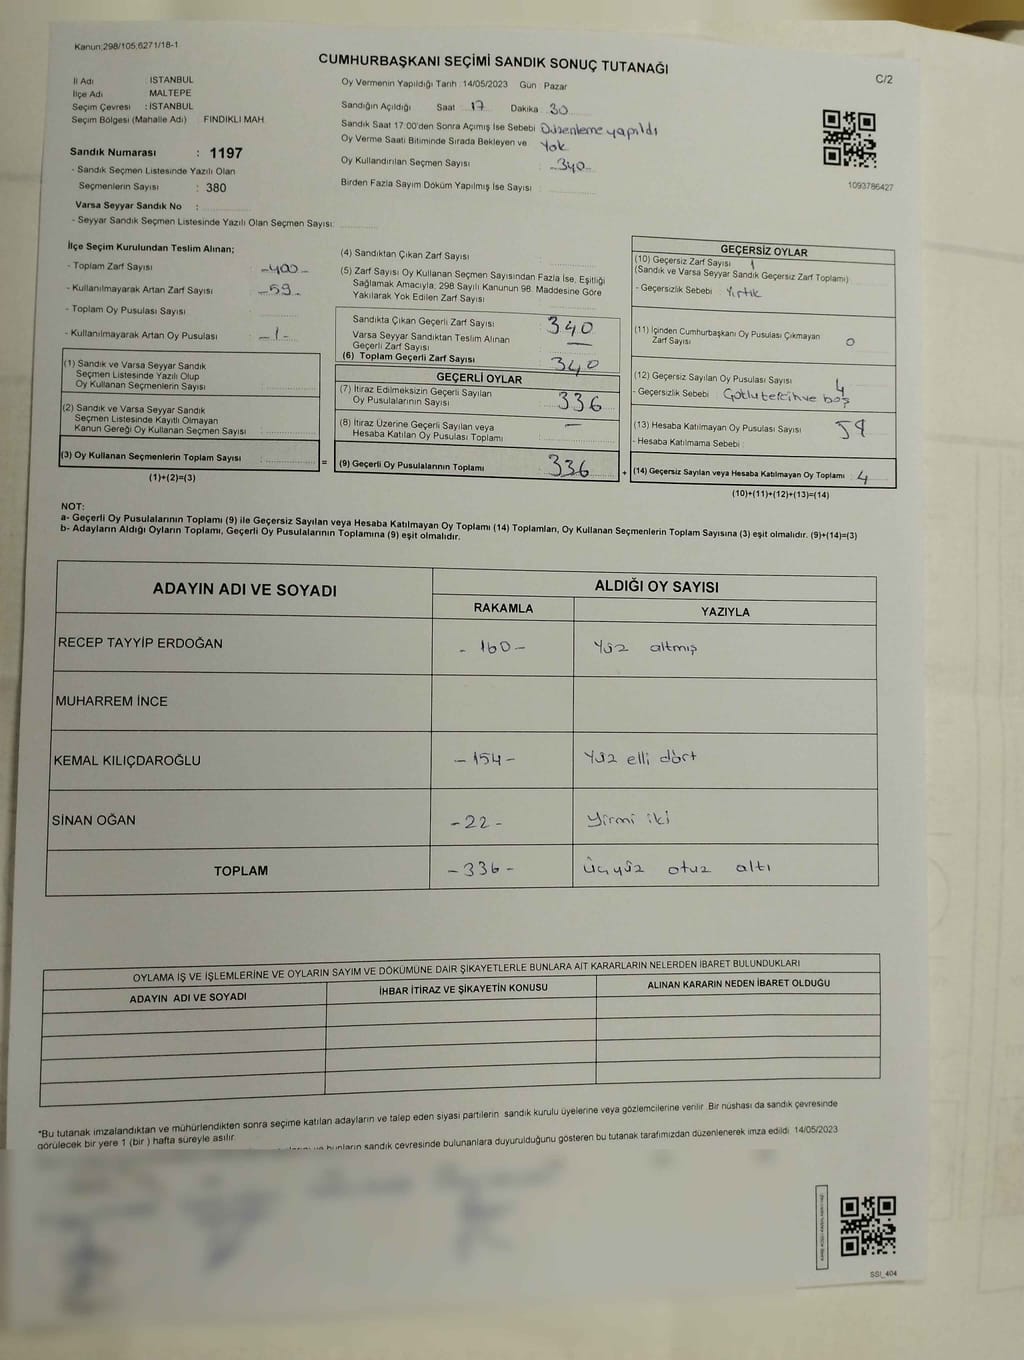 Kanun;298/105;6271/18-1
CUMHURBAŞKANI SEÇİMİ SANDIK SONUÇ TUTANAĞI
C/2
İl Adı : İSTANBUL
İlçe Adı : MALTEPE
Seçim Çevresi : İSTANBUL
Seçim Bölgesi (Mahalle Adı) : FINDIKLI MAH.
Sandık Numarası : 1197
- Sandık Seçmen Listesinde Yazılı Olan
Seçmenlerin Sayısı : 380
Varsa Seyyar Sandık No :
- Seyyar Sandık Seçmen Listesinde Yazılı Olan Seçmen Sayısı:
Oy Vermenin Yapıldığı Tarih : 14/05/2023 Gün : Pazar
Sandığın Açıldığı Saat : 17 Dakika : 30
Sandık Saat 17:00'den Sonra Açımış İse Sebebi : Düzenleme yapıldı
Oy Verme Saati Bitiminde Sırada Bekleyen ve Yok
Oy Kullandırılan Seçmen Sayısı : -340-
Birden Fazla Sayım Döküm Yapılmış İse Sayısı :
1093786427
İlçe Seçim Kurulundan Teslim Alınan;
- Toplam Zarf Sayısı : -400-
- Kullanılmayarak Artan Zarf Sayısı : -59-
- Toplam Oy Pusulası Sayısı :
- Kullanılmayarak Artan Oy Pusulası : -1-
(1) Sandık ve Varsa Seyyar Sandık
Seçmen Listesinde Yazılı Olup
Oy Kullanan Seçmenlerin Sayısı :
(2) Sandık ve Varsa Seyyar Sandık
Seçmen Listesinde Kayıtlı Olmayan
Kanun Gereği Oy Kullanan Seçmen Sayısı :
(3) Oy Kullanan Seçmenlerin Toplam Sayısı :
(1)+(2)=(3)
(4) Sandıktan Çıkan Zarf Sayısı :
(5) Zarf Sayısı Oy Kullanan Seçmen Sayısından Fazla İse, Eşitliği
Sağlamak Amacıyla; 298 Sayılı Kanunun 98. Maddesine Göre
Yakılarak Yok Edilen Zarf Sayısı :
Sandıkta Çıkan Geçerli Zarf Sayısı : 340
Varsa Seyyar Sandıktan Teslim Alınan
Geçerli Zarf Sayısı : —
(6) Toplam Geçerli Zarf Sayısı : 340
GEÇERLİ OYLAR
(7) İtiraz Edilmeksizin Geçerli Sayılan
Oy Pusulalarının Sayısı : 336
(8) İtiraz Üzerine Geçerli Sayılan veya
Hesaba Katılan Oy Pusulası Toplamı : —
= (9) Geçerli Oy Pusulalarının Toplamı : 336 +
GEÇERSİZ OYLAR
(10) Geçersiz Zarf Sayısı : 1
(Sandık ve Varsa Seyyar Sandık Geçersiz Zarf Toplamı)
- Geçersizlik Sebebi : Yırtık
(11) İçinden Cumhurbaşkanı Oy Pusulası Çıkmayan
Zarf Sayısı : 0
(12) Geçersiz Sayılan Oy Pusulası Sayısı : 4
- Geçersizlik Sebebi : tercih ve boş
(13) Hesaba Katılmayan Oy Pusulası Sayısı : 59
- Hesaba Katılmama Sebebi :
(14) Geçersiz Sayılan veya Hesaba Katılmayan Oy Toplamı : 4
(10)+(11)+(12)+(13)=(14)
NOT:
a- Geçerli Oy Pusulalarının Toplamı (9) ile Geçersiz Sayılan veya Hesaba Katılmayan Oy Toplamı (14) Toplamları, Oy Kullanan Seçmenlerin Toplam Sayısına (3) eşit olmalıdır. (9)+(14)=(3)
b- Adayların Aldığı Oyların Toplamı, Geçerli Oy Pusulalarının Toplamına (9) eşit olmalıdır.
ADAYIN ADI VE SOYADI ALDIĞI OY SAYISI
RAKAMLA YAZIYLA
RECEP TAYYİP ERDOĞAN - 160 - Yüz altmış
MUHARREM İNCE
KEMAL KILIÇDAROĞLU - 154 - Yüz elli dört
SİNAN OĞAN - 22 - Yirmi iki
TOPLAM - 336 - Üçyüz otuz altı
OYLAMA İŞ VE İŞLEMLERİNE VE OYLARIN SAYIM VE DÖKÜMÜNE DAİR ŞİKAYETLERLE BUNLARA AİT KARARLARIN NELERDEN İBARET BULUNDUKLARI
ADAYIN ADI VE SOYADI İHBAR İTİRAZ VE ŞİKAYETİN KONUSU ALINAN KARARIN NEDEN İBARET OLDUĞU
*Bu tutanak imzalandıktan ve mühürlendikten sonra seçime katılan adayların ve talep eden siyasi partilerin sandık kurulu üyelerine veya gözlemcilerine verilir. Bir nüshası da sandık çevresinde
görülecek bir yere 1 (bir ) hafta süreyle asılır.
bunların sandık çevresinde bulunanlara duyurulduğunu gösteren bu tutanak tarafımızdan düzenlenerek imza edildi. 14/05/2023
SSI_404